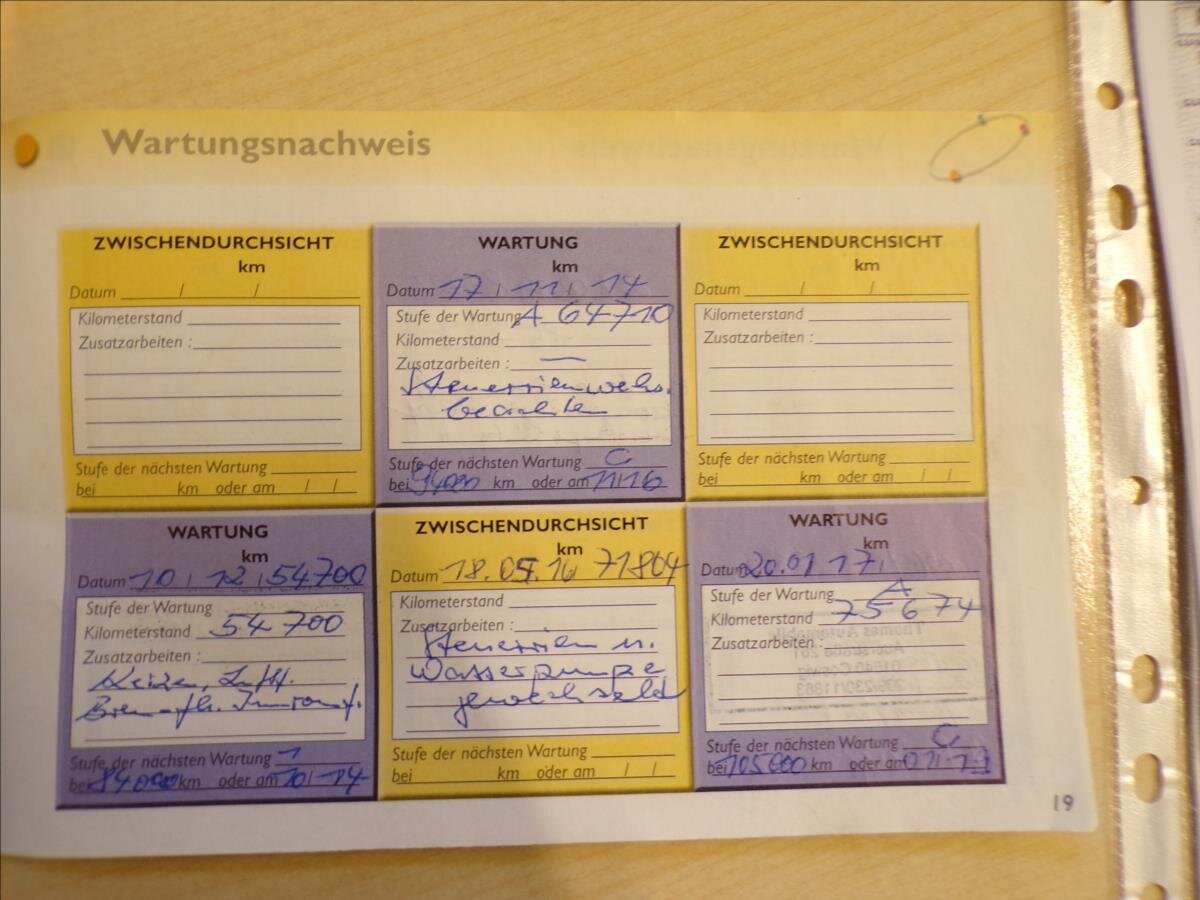 Wartungsnachweis
ZWISCHENDURCHSICHT
km
Datum / /
Kilometerstand
Zusatzarbeiten :
Stufe der nächsten Wartung
bei km oder am / /
WARTUNG
km
Datum 17 / 11 / 14
Stufe der Wartung A 64710
Kilometerstand
Zusatzarbeiten : —
Steuerrienwechs.
beachten
Stufe der nächsten Wartung C
bei 94000 km oder am 11/16
ZWISCHENDURCHSICHT
km
Datum / /
Kilometerstand
Zusatzarbeiten :
Stufe der nächsten Wartung
bei km oder am / /
WARTUNG
km
Datum 10 / 12 / 54700
Stufe der Wartung
Kilometerstand 54 700
Zusatzarbeiten :
Stufe der nächsten Wartung 1
bei 84000 km oder am 10/ 14
ZWISCHENDURCHSICHT
km
Datum 18.05.16 71804
Kilometerstand
Zusatzarbeiten :
Steuerrien u.
Wasserpumpe
gewechseld
Stufe der nächsten Wartung
bei km oder am / /
WARTUNG
km
Datum 20.01 17
Stufe der Wartung A
Kilometerstand 75674
Zusatzarbeiten :
Stufe der nächsten Wartung C
bei 105000 km oder am
19